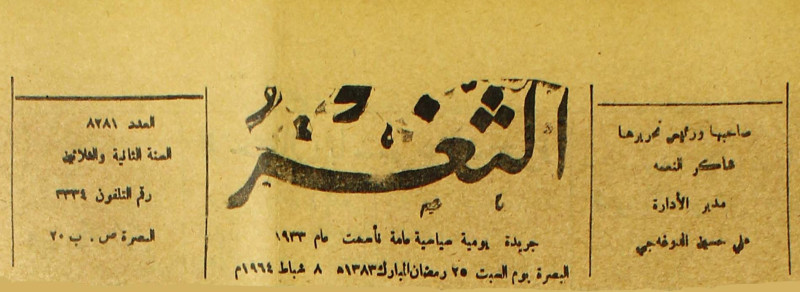 صاحبها ورئيس تحريرها
شاكر النعمه
مدير الأدارة
علي حسين الدوغه‌جي
الثغر
جريدة يومية سياسية عامة تأسست عام ١٩٣٣
البصرة يوم السبت ٢٥ رمضان المبارك ١٣٨٣ه ٨ شباط ١٩٦٤م
العدد ٨٢٨١
السنة الثانية والثلاثين
رقم التلفون ٣٣٣٤
البصرة ص . ب ٢٠